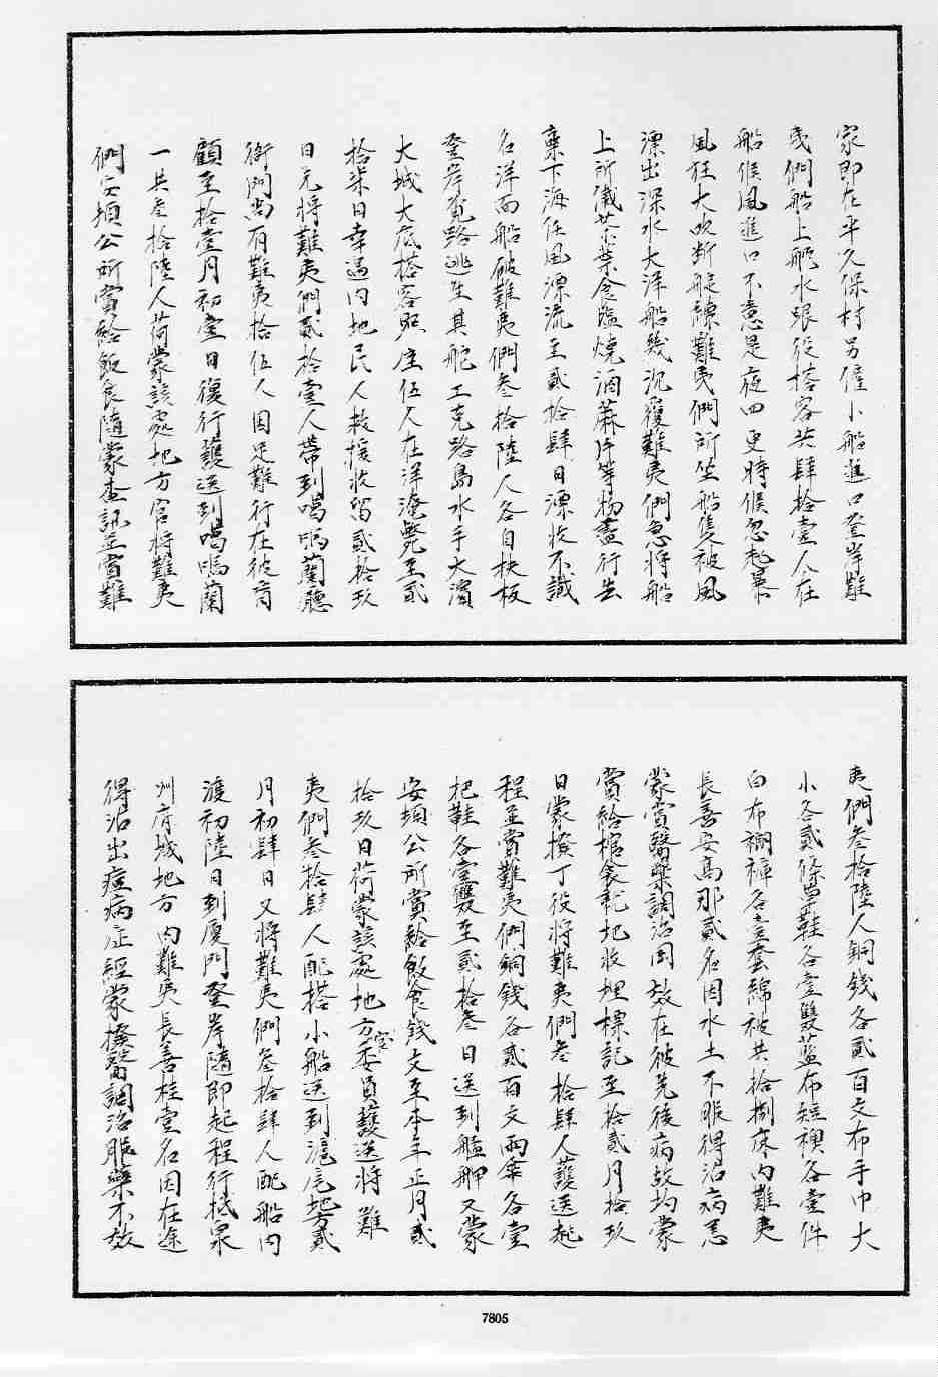 家即在平久保村另僱小船進口登岸難
夷們船上舵水跟役搭客共肆拾壹人在
船候風進口不意是夜四更時候忽起暴
風狂大吹断碇練難夷們所坐船隻被風
漂出深水大洋船幾沉覆難夷們急將船
上所儀茶葉食鹽燒酒蔴片等物盡行丟
棄下海任風漂流至貳拾肆日漂收不識
名洋面船破難夷們叁拾陸人各自扶板
登岸覓路逃生其舵工克路島水手大濱
大城大底搭客照座伍人在洋淹斃至貳
拾柒日幸遇内地民人救援收留貳拾玖
日元將難夷們貳拾壹人帶到噶嗎蘭廳
衙門尚有難夷拾伍人因足難行在彼育
顧至拾壹月初壹日復行護送到噶嗎蘭
一共叁拾陸人荷蒙該處地方官將難夷
們安頓公所賞給飯食隨蒙查訊並賞難
夷們叁拾陸人銅錢各貳百文布手巾大
小各貳條草鞋各壹雙藍布短襖各壹件
白布裯褲各壹套綿被共拾捌床内難夷
長善安高那貳名因水土不服得沾病恙
蒙賞醫藥調治罔效在彼先後病故均蒙
賞給棺衾乾地收埋標記至拾貳月拾玖
日蒙撥丁役將難夷們叁拾肆人護送起
程並賞難夷們銅錢各貳百文雨傘各壹
把鞋各壹雙至貳拾叁日送到艋舺又蒙
安頓公所賞給飯食錢文至本年正月貳
拾玖日荷蒙該處地方官委員護送將難
夷們叁拾肆人配搭小船送到滬尾地方貳
月初肆日又將難夷們叁拾肆人配船内
渡初陸日到厦門登岸隨即起程行抵泉
州府城地方内難夷長善桂壹名因在途
得沾出痘病症經蒙撥醫調治服藥不效
7805